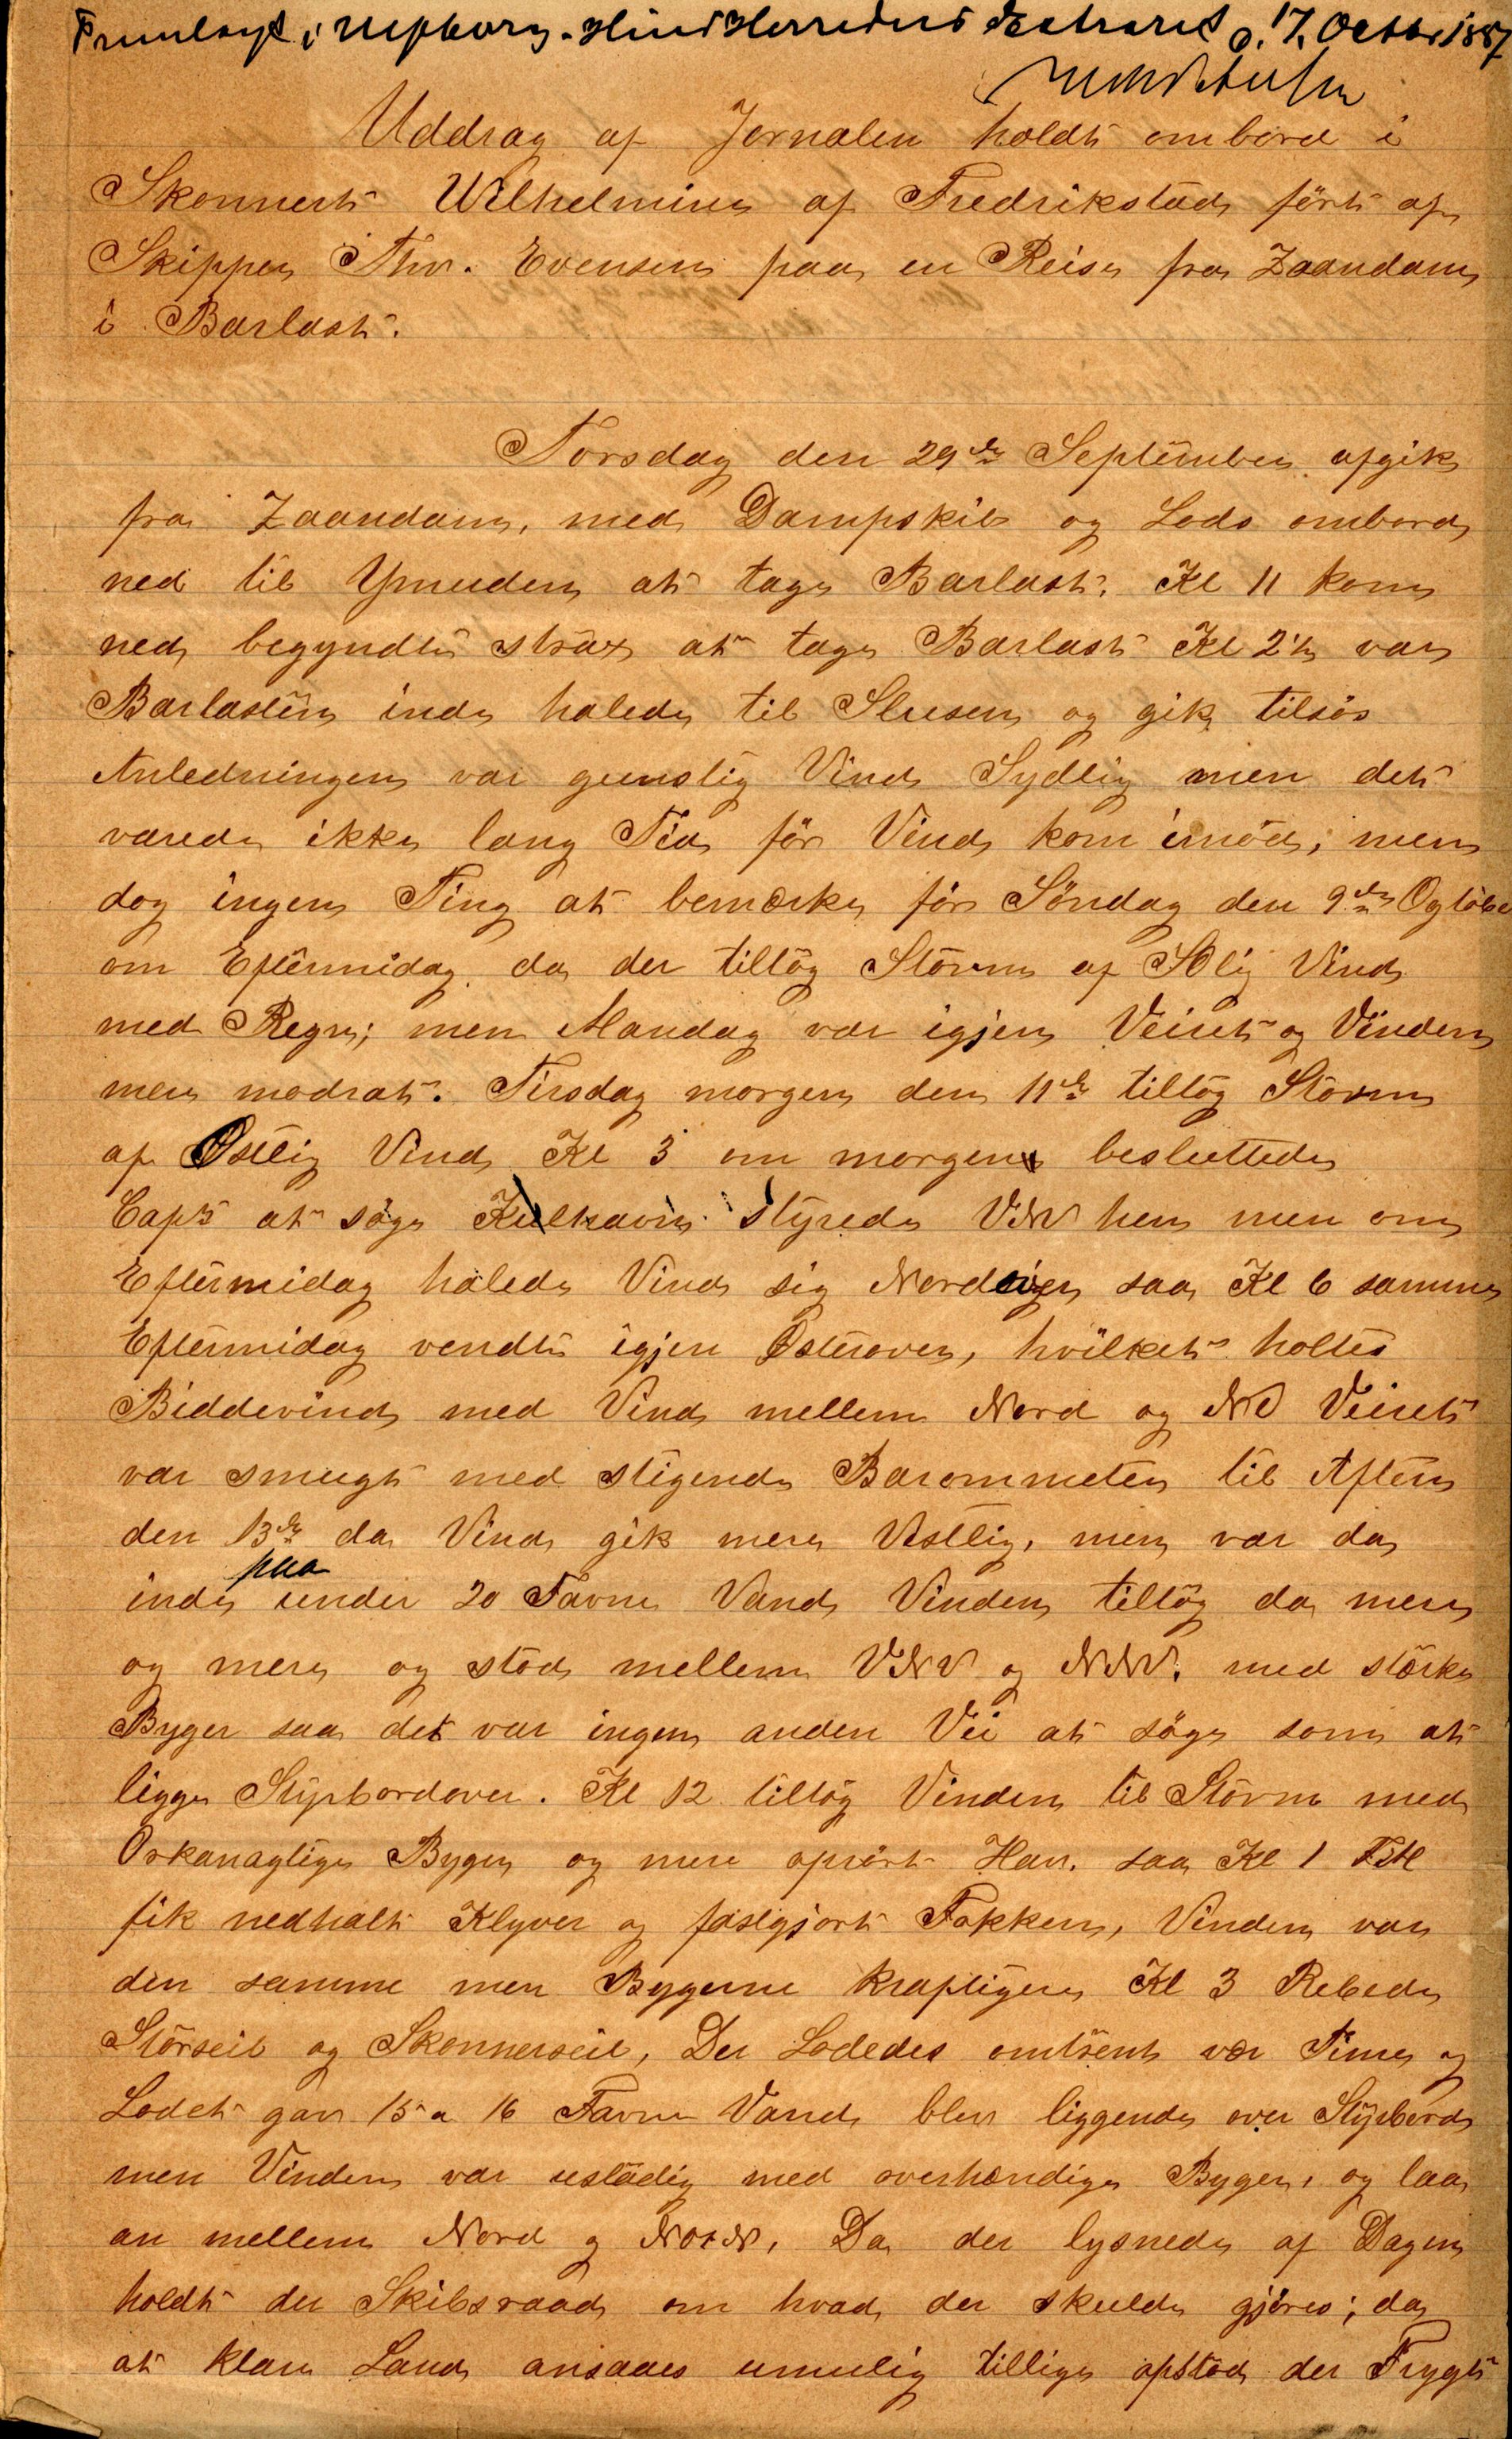 Fremlagt i Ulfborg-Hind Herreders Extraret d. 17. Octbr 1887
Uddrag af Jornalen holdt ombord i
Skonnert Wilhelmine af Fredrikstad ført af
Skipper Thv. Evensen paa en Reise fra Zaandam
i Barlast.
Torsdag den 29de September afgik
fra Zaandam, med Dampskib og Lods ombord
ned til Ymuden at tage Barlast. Kl 11 kom
ned begyndte strax at tage Barlast Kl 2½ var
Barlasten inde halede til Slusen og gik tilsøs
Anledningen var gunstig Vind Sydlig men det
varede ikke lang Tid før Vind kom imod; men
dog ingen Ting at bemærke før Søndag den 9de Ogtober
om Eftermidag da der tiltog Storm af SOlig Vind
med Regn; men Mandag var igjen Veiret og Vinden
mere modrat. Tirsdag morgen den 11te tiltog Storm
af Ostlig Vind Kl 3 om morgen besluttede
Capt at søge Kulhavn styrede VNV hen men om
Eftermidag halede Vind sig Nordligere saa Kl 6 samme
Eftermidag vendte igjen Østerover, hvilket holtes
Biddevind med Vind mellem Nord og NO Veiret
var smugt med stigende Barommeter til Aften
den 13de da Vind gik mere Vestlig, men var da
inde paa under 20 Favne Vand Vinden tiltog da mere
og mere og stod mellem VNV og NNV. med stærke
Byger saa det var ingen anden Vei at søge som at
ligge Styrbordover. Kl 12 tiltog Vinden til Storm med
Orkanagtige Byger og mere oprørt Hav. saa Kl 1
fik nedhalt Klyver og fastgjort Fokken, Vinden var
den samme men Bygerne kraftigere Kl 3 Rebede
Storseil og Skonnerseil, Der Lodedes omtrent vær Time og
Lodet gav 15 a 16 Favne Vand blev liggende over Styrbord
men Vinden var ustadig med overhændige Byger, og laa
an mellem Nord og NotN. Da der lysnede af Dagen
holdt der Skibsraad om hvad der skulde gjøres; da
at klare Land ansaaes umulig tillige opstod der Frygt